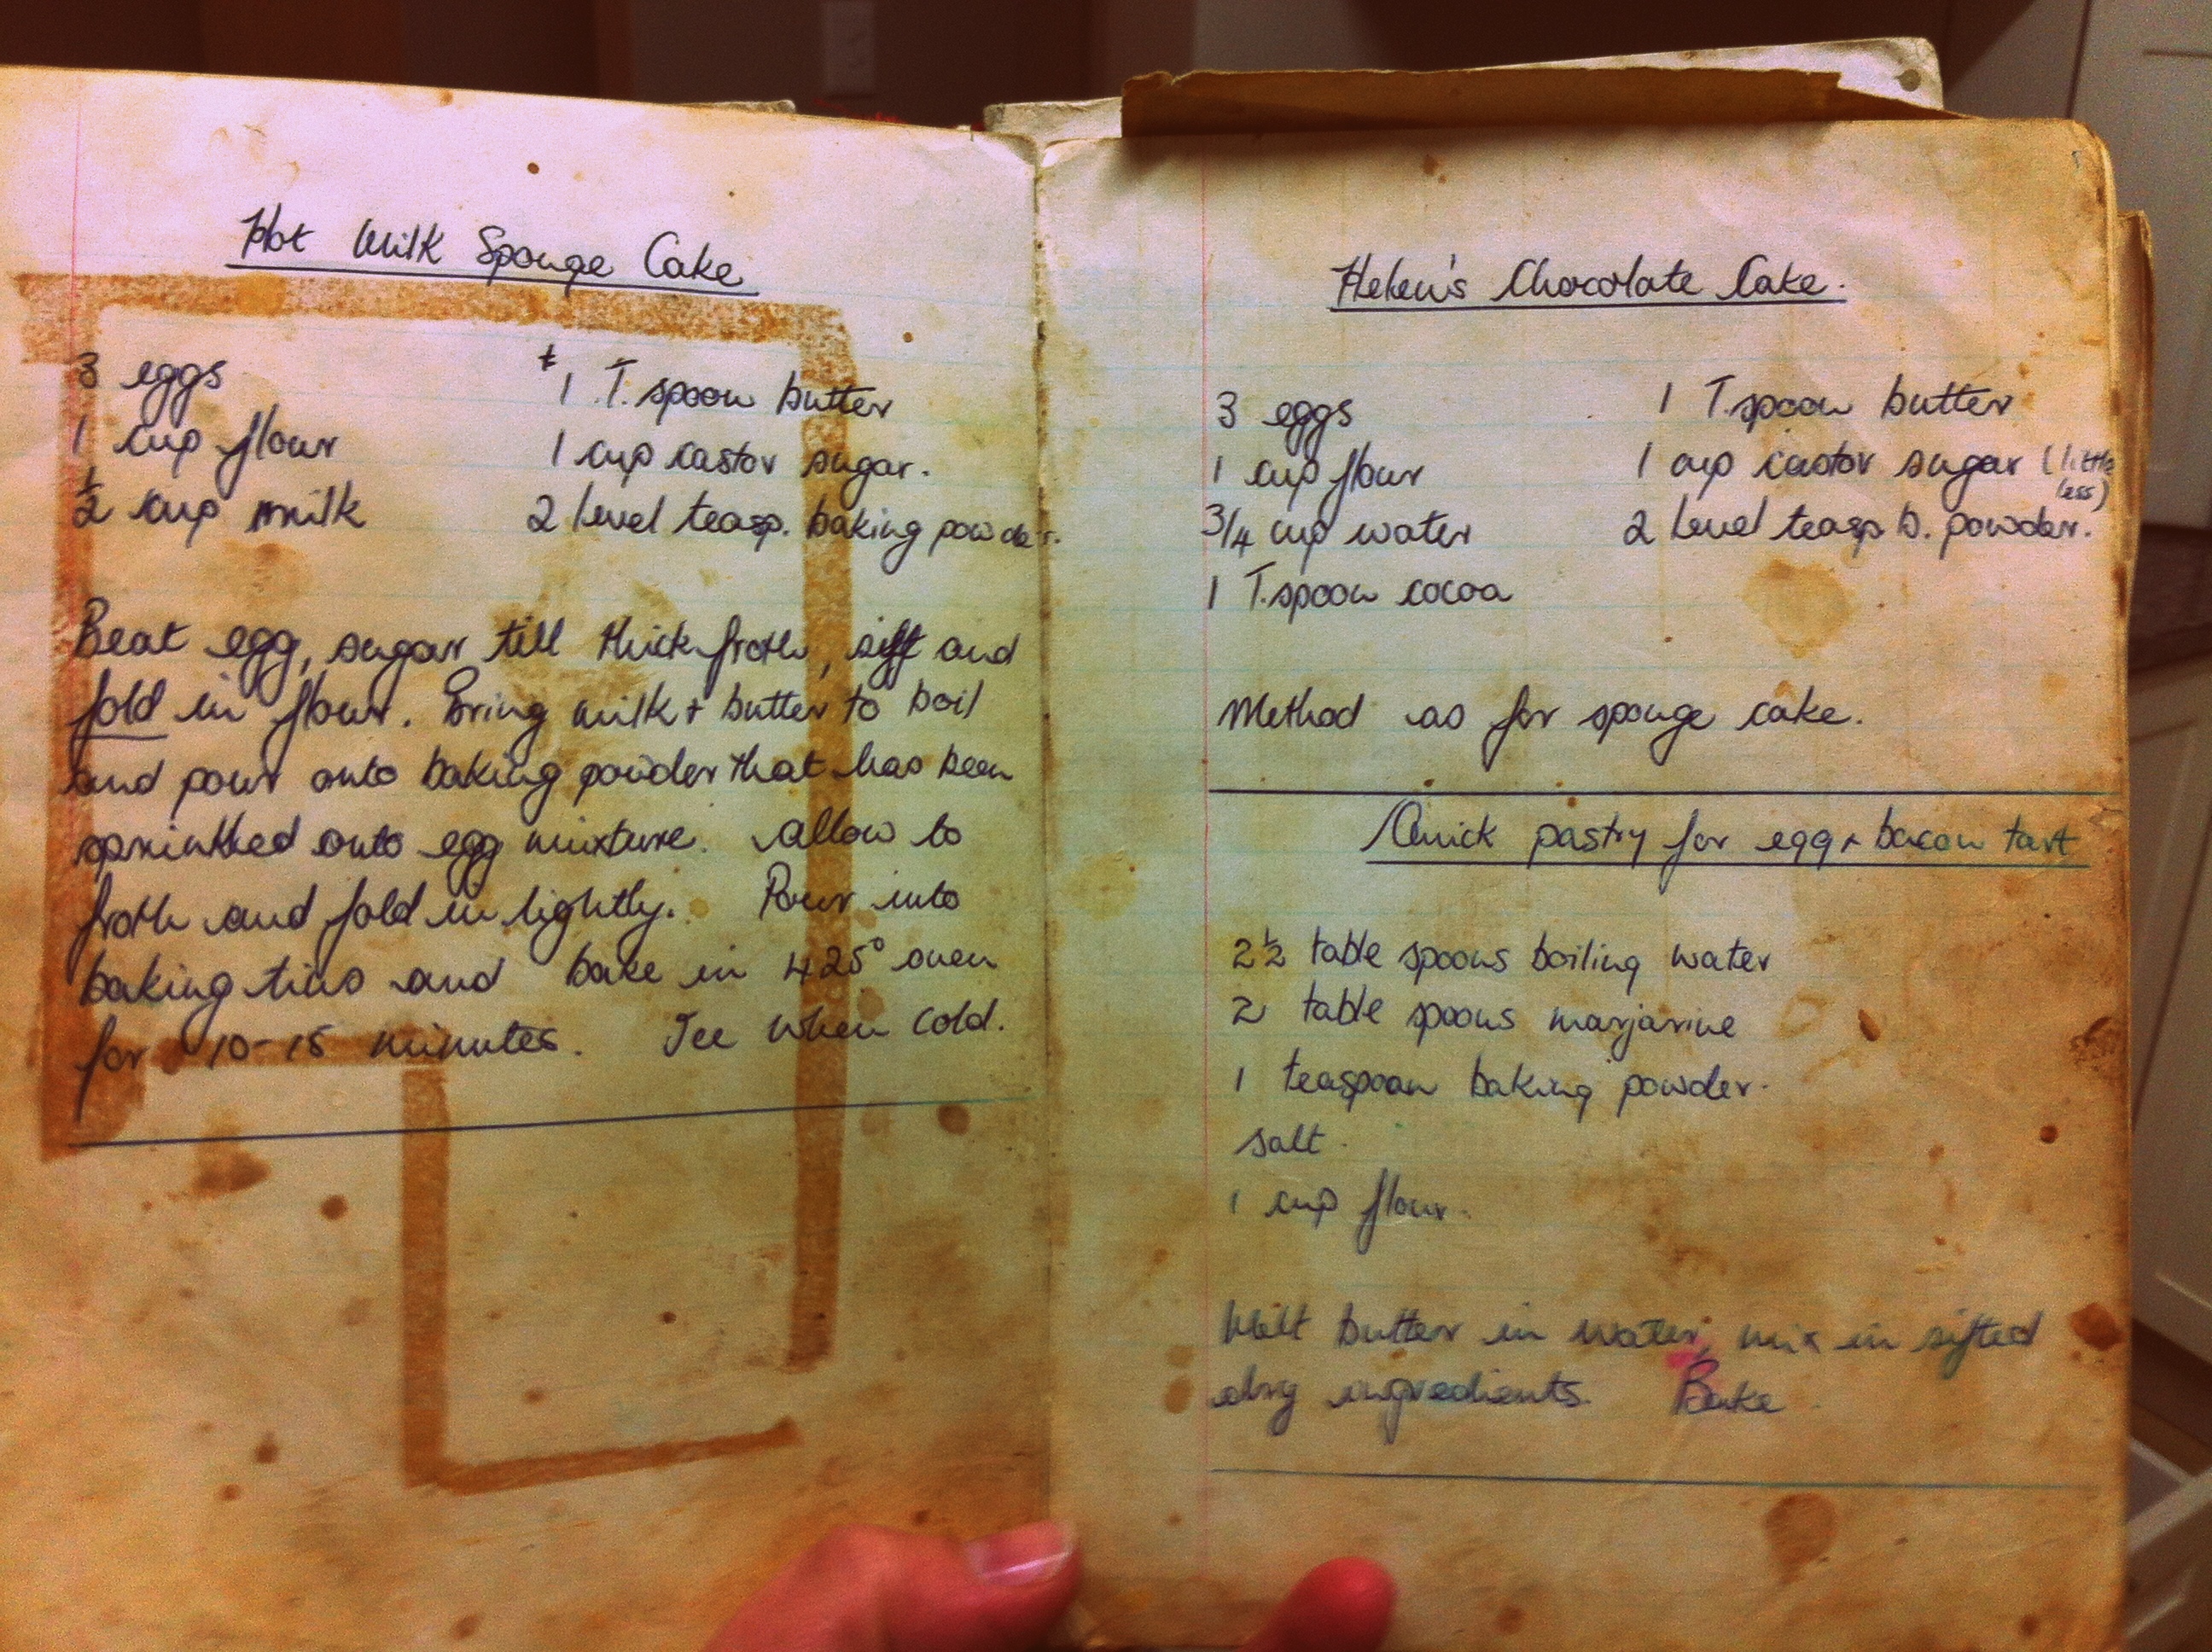 Hot Milk Sponge Cake
3 eggs
1 cup flour
½ cup milk
1 T.spoon butter
1 cup castor sugar.
2 level teasp. baking powder.
Beat egg, sugar till thick froth, sift and
fold in flour. Bring milk + butter to boil
and pour onto baking powder that has been
sprinkled onto egg mixture. Allow to
froth and fold in lightly. Pour into
baking tins and bake in 425° oven
for 10-15 minutes. Ice when cold.
Helen's Chocolate Cake.
3 eggs
1 cup flour
3/4 cup water
1 T.spoon cocoa
1 T.spoon butter
1 cup castor sugar (little
less)
2 level teasp b. powder.
Method as for sponge cake.
Quick pastry for egg + bacon tart
2½ table spoons boiling water
2 table spoons marjarine
1 teaspoon baking powder.
salt.
1 cup flour.
Melt butter in water, mix in sifted
dry ingredients. Bake